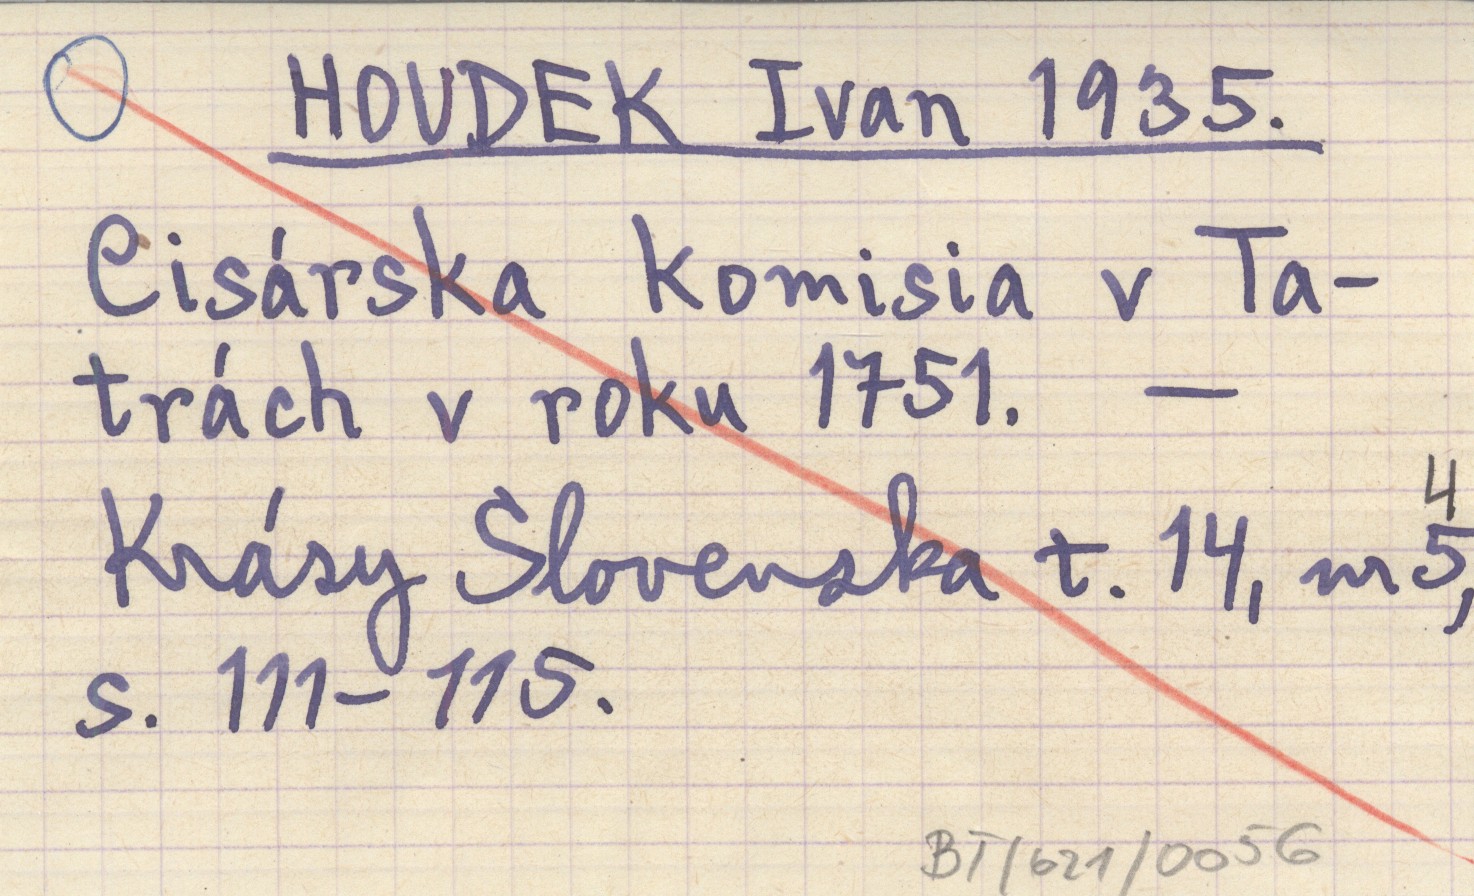 HOUDEK Ivan 1935.
Cisárska komisia v Ta-
trách v roku 1751. —
4
Krásy Slovenska t. 14, nr 5,
s. 111-115.
BT/621/0056